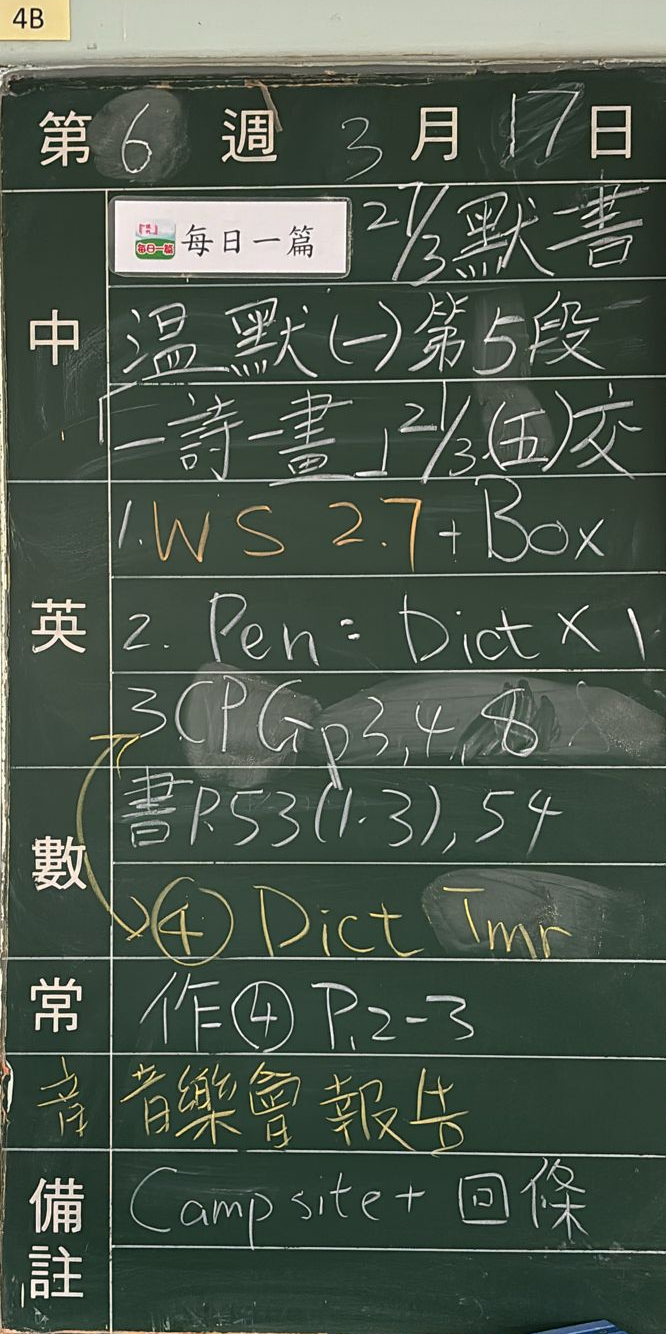 4B
第6週3月17日
中
每日一篇 21/3默書
温默(一)第5段
「一詩一畫」21/3(五)交
英
1. WS 2.7 + Box
2. Pen: Dict × 1
3 CPG p3,4,8
數
書P.53(1.3), 54
④ Dict Tmr
常 作④ P.2-3
音 音樂會報告
備註
Camp site + 回條